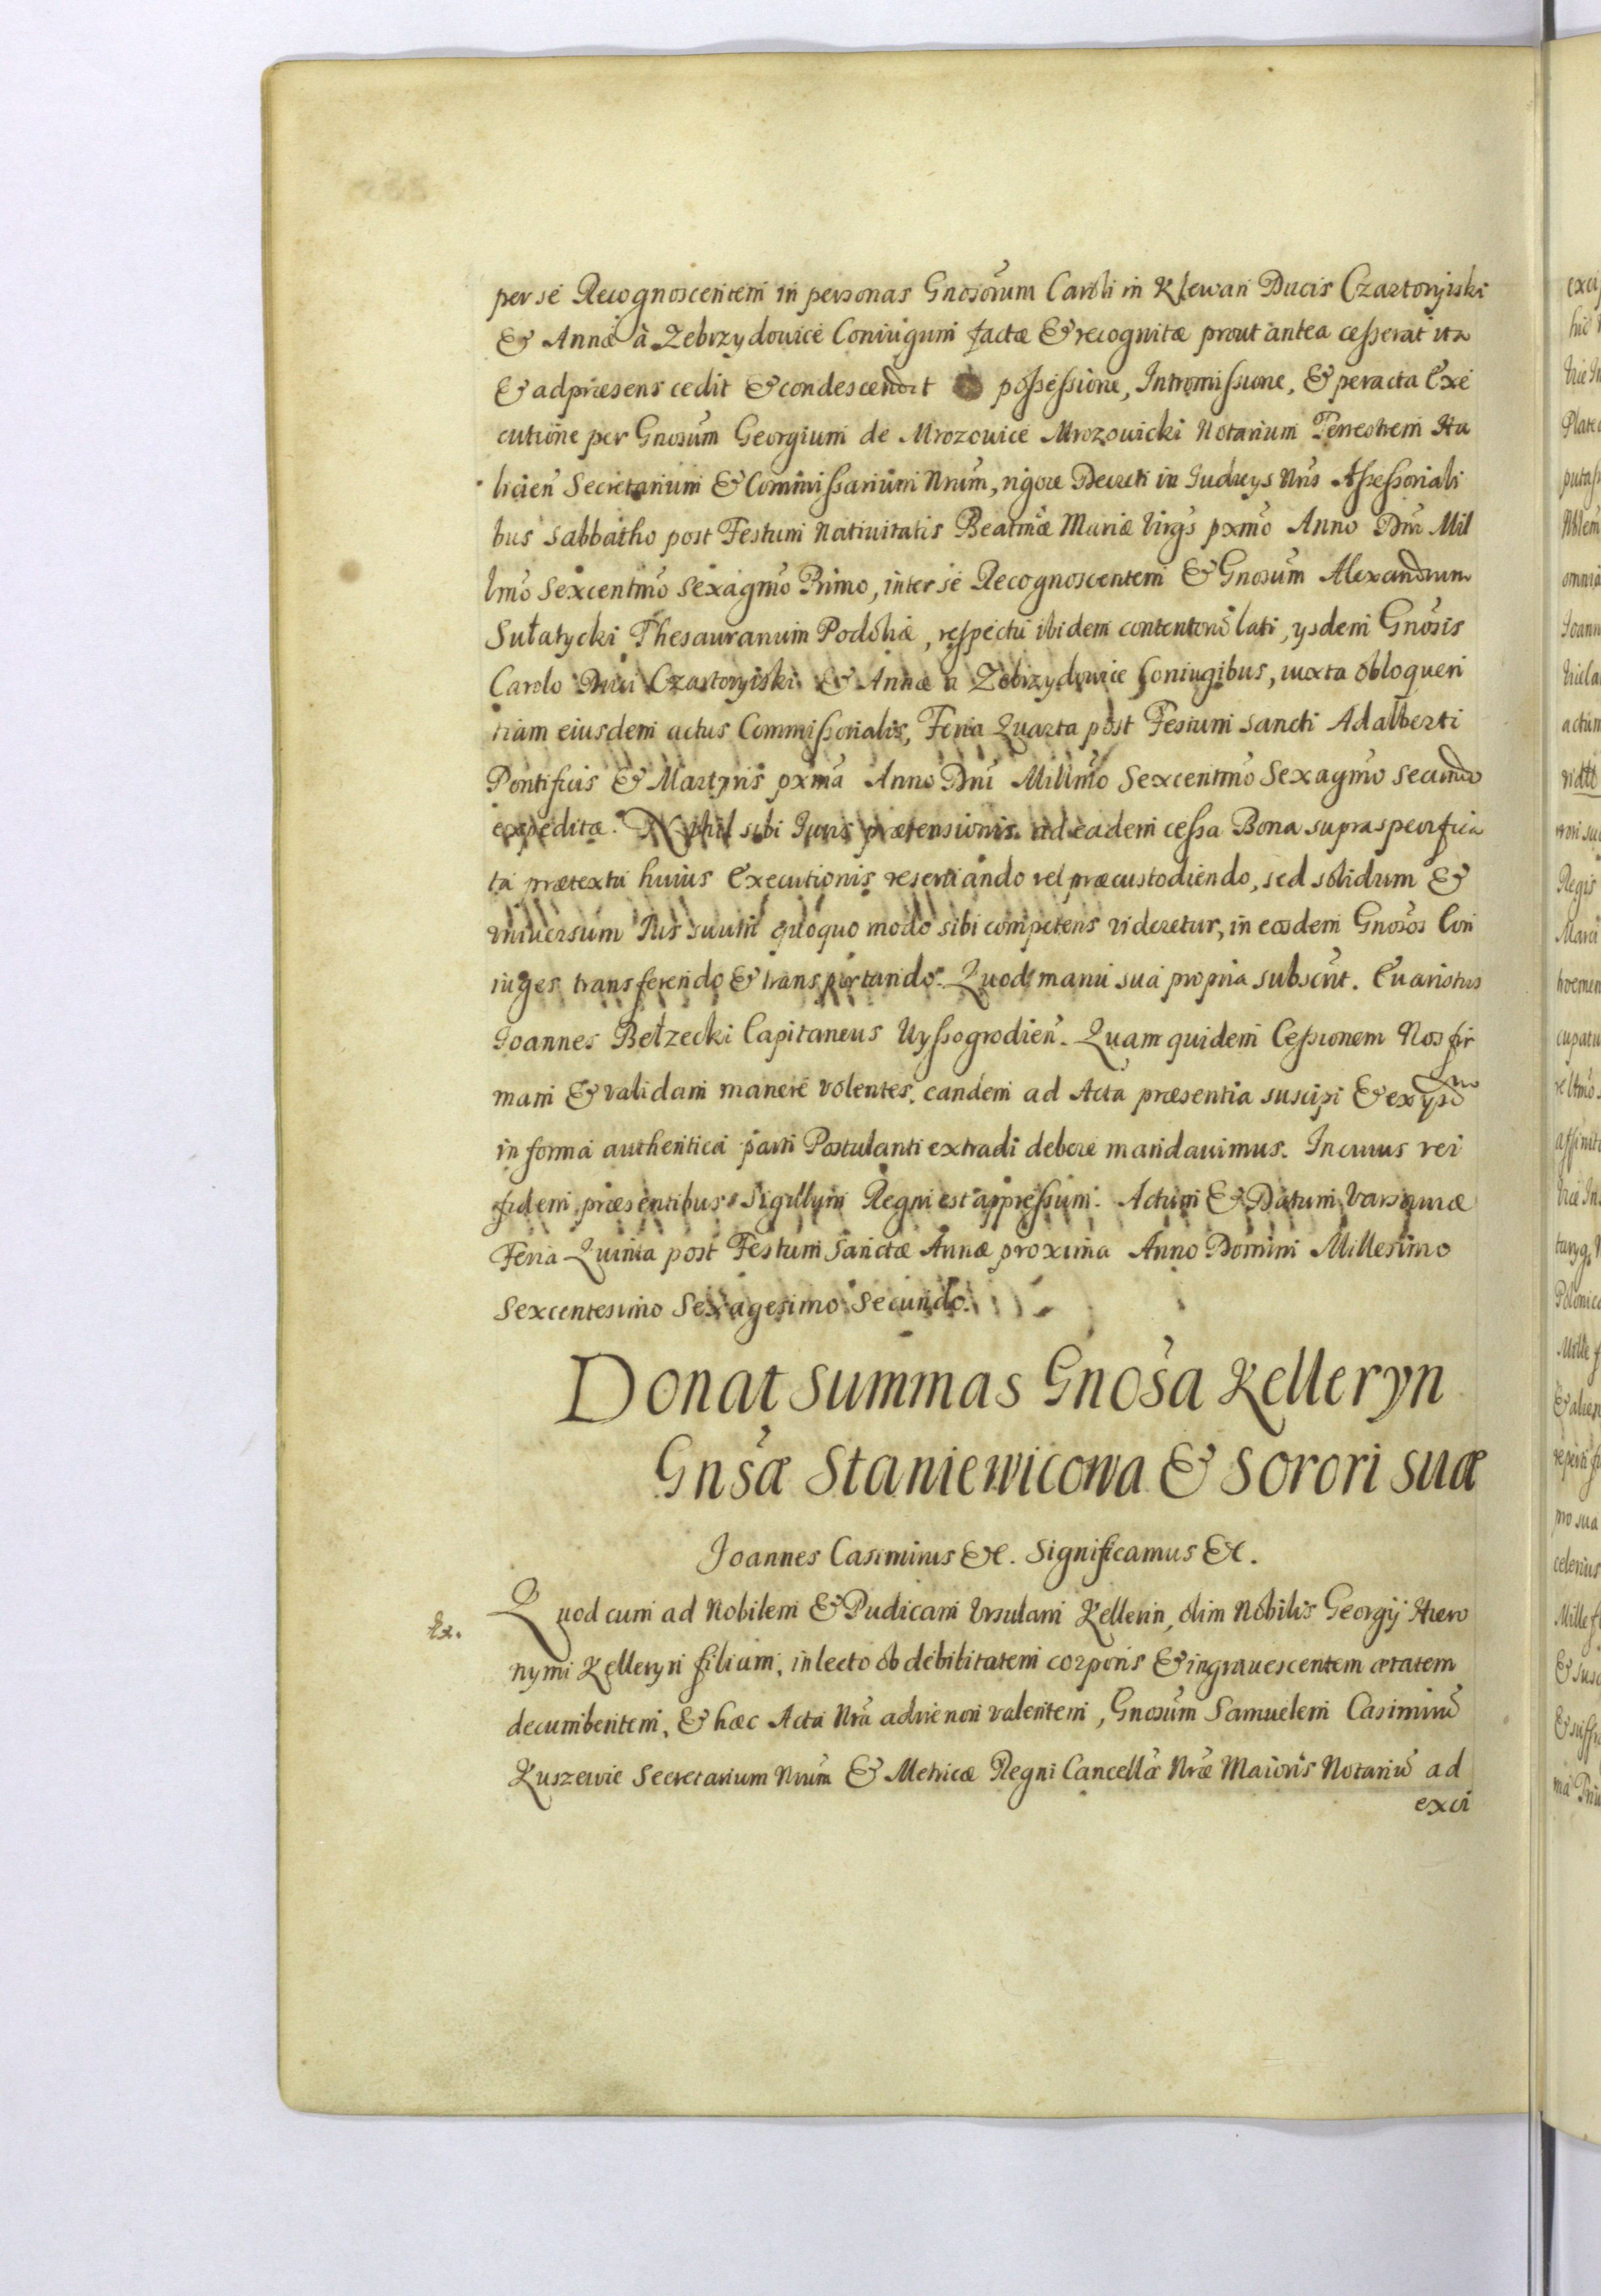 per se Recognoscentem in personas Gnosorum Caroli in Klewan Ducis Czartoryiski
& Annæ à Zebrzydowice Coniugum factæ & recognitæ prout antea cesserat ita
& ad præsens cedit & condescendit possessione, Intromissione, & peracta Exe
cutione per Gnosum Georgium de Mrozowice Mrozowicki Notarium Terrestrem Ha
licien Secretarium & Commissarium Nrum, vigore Decreti in Iudicys Nris Assessoriali
bus Sabbatho post Festum Natiuitatis Beatmæ Mariæ Virgs pxmo Anno Dni Mil
lmo Sexcentmo Sexagmo Primo, inter se Recognoscentem & Gnosum Alexandrum
Sułatycki Thesaurarium Podoliæ, respectu ibidem contentorũ lati, ysdem Gnosis
Carolo Duci Czartoryiski & Annæ a Zebrzydowice Coniugibus, iuxta obloquen
tiam eiusdem actus Commissorialis, Feria Quarta post Festum Sancti Adalberti
Pontificis & Martyris pxma Anno Dni Millmo Sexcentmo Sexagmo Secundo
expeditæ. Nihil sibi Iuris prætensionis ad eadem cessa Bona supraspecifica
ta prætextu huius Executionis reseruando vel præcustodiendo, sed solidum &
vniuersum Ius suum quoquo modo sibi competens videretur, in eosdem Gnosos Con
iuges transferendo & transportando. Quod manu sua propria subscrit. Euaristus
Joannes Bełzecki Capitaneus Wyssogrodien. Quam quidem Cessionem Nos fir
mam & validam manere volentes, eandem ad Acta præsentia suscipi & ex ysd
in forma authentica parti Postulanti extradi debere mandauimus. In cuius rei
fidem præsentibus Sigillum Regni est appressum. Actum & Datum Varsauiæ
Feria Quinta post Festum Sanctæ Annæ proxima Anno Domini Millesimo
Sexcentesimo Sexagesimo Secundo.
Donat Summas Gnosa Kelleryn
Gnsæ Staniewicowa & Sorori suæ
Joannes Casimirus &c. Significamus &c.
Quod cum ad Nobilem & Pudicam Vrsulam Kellerin, olim Nobilis Georgij Hiero
nymi Kelleryn filiam, in lecto ob debilitatem corporis & ingrauescentem ætatem
decumbentem, & hæc Acta Nra adire non valentem, Gnosum Samuelem Casimirũ
Kuszewic Secretarium Nrum & Metricæ Regni Cancellæ Nræ Maioris Notariũ ad
exci